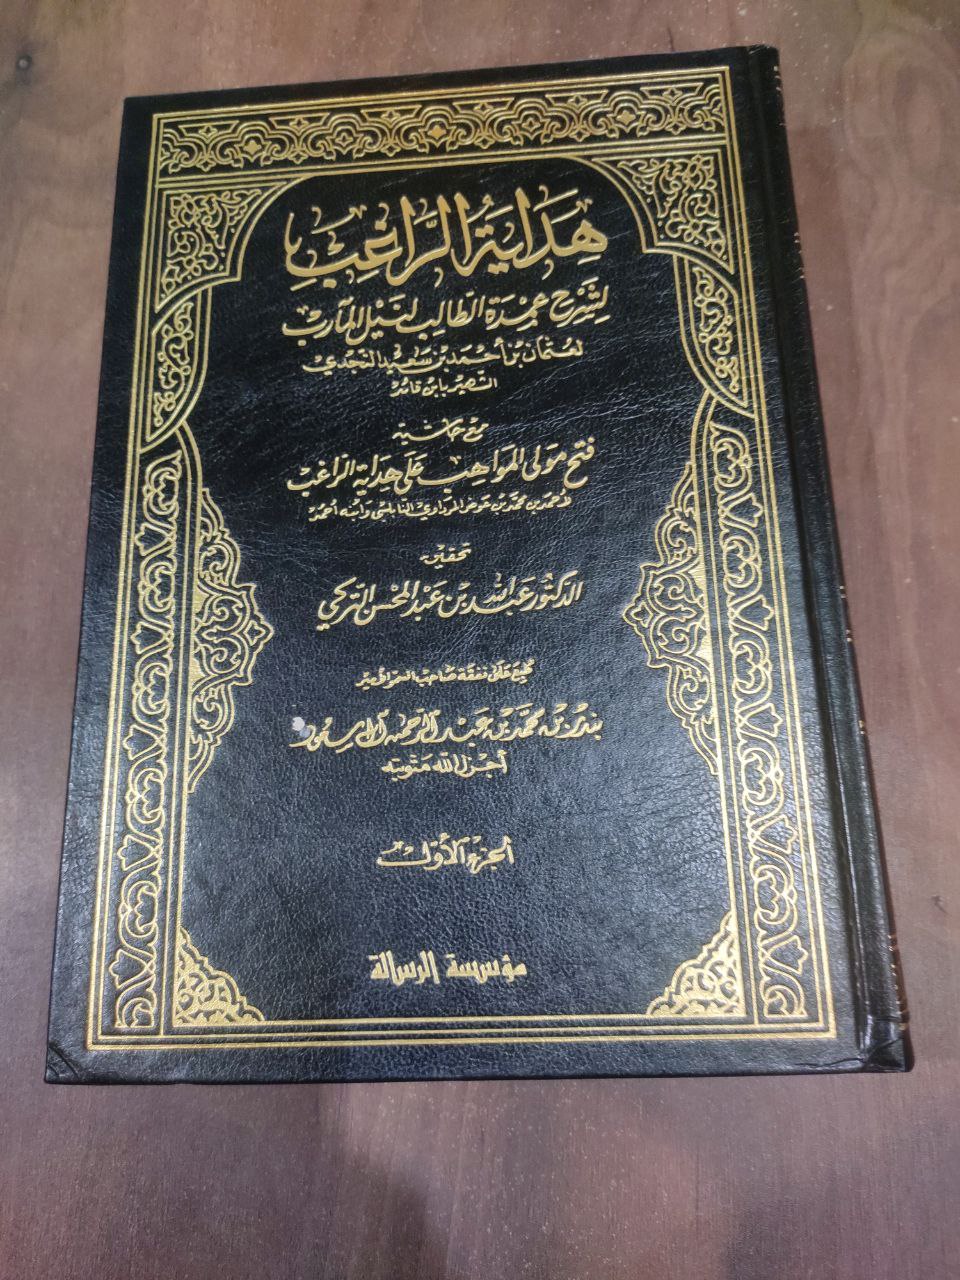 هِدَايَةُ الرَّاغِبِ
لِشَرْحِ عُمْدَةِ الطَّالِبِ لِنَيْلِ المَآرِبِ
لعثمان بن أحمد بن سعيد النجدي
الشهير بابن قائد
مع حاشية
فتح مولى المواهب على هداية الراغب
لأحمد بن محمد بن عوض المرداوي النابلسي وابنه أحمد
تحقيق
الدكتور عبد الله بن عبد المحسن التركي
طبع على نفقة صاحب السمو الأمير
بندر بن محمد بن عبد الرحمن آل سعود
أجزل الله مثوبته
الجزء الأول
مؤسسة الرسالة